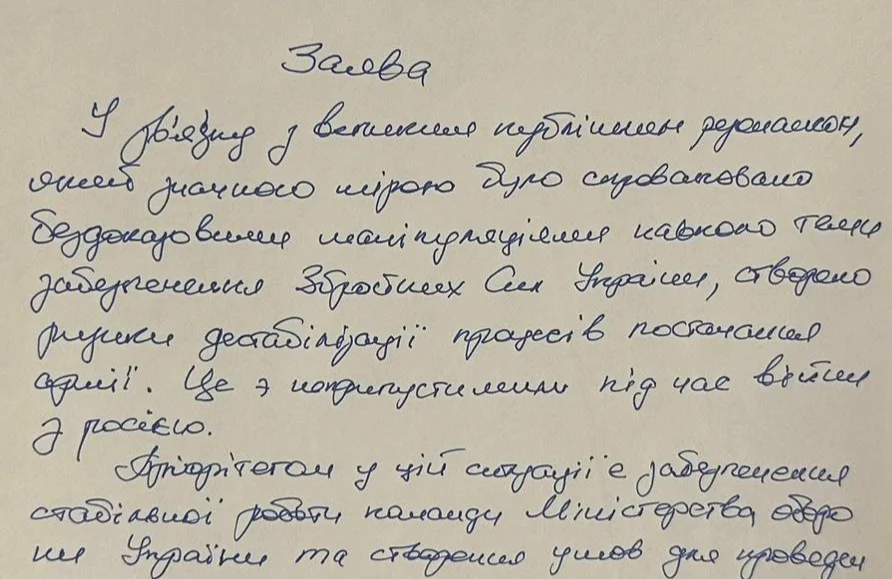 Заява
У зв'язку з великим публічним резонансом,
який значною мірою було спровоковано
бездоказовими маніпуляціями навколо теми
забезпечення Збройних Сил України, створено
ризики дестабілізації процесів постачання
армії. Це є неприпустимим під час війни
з росією.
Пріорітетом у цій ситуації є забезпечення
стабільної роботи команди Міністерства оборо
ни України та створення умов для проведен